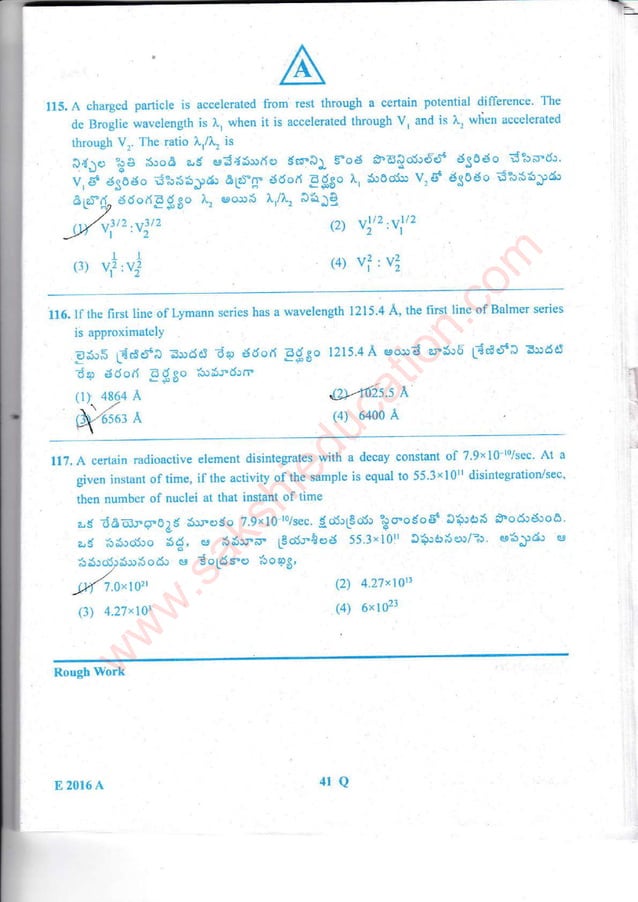 A
115. A charged particle is accelerated from rest through a certain potential difference. The
de Broglie wavelength is λ₁ when it is accelerated through V₁ and is λ₂ when accelerated
through V₂. The ratio λ₁/λ₂ is
నిశ్చల స్థితి నుండి ఒక ఆవేశముగల కణాన్ని కొంత పొటెన్షియల్‌లో త్వరితం చేసినారు.
V₁తో త్వరితం చేసినప్పుడు డీబ్రొగ్లా తరంగ దైర్ఘ్యం λ₁ మరియు V₂తో త్వరితం చేసినప్పుడు
డీబ్రొగ్లీ తరంగదైర్ఘ్యం λ₂ అయిన λ₁/λ₂ నిష్పత్తి
(1) V₁^3/2 : V₂^3/2 (2) V₂^1/2 : V₁^1/2
(3) V₁^1/2 : V₂^1/2 (4) V₁² : V₂²
116. If the first line of Lymann series has a wavelength 1215.4 Å, the first line of Balmer series
is approximately
లైమన్ శ్రేణిలోని మొదటి రేఖ తరంగ దైర్ఘ్యం 1215.4 Å అయితే బామర్ శ్రేణిలోని మొదటి
రేఖ తరంగ దైర్ఘ్యం సుమారుగా
(1) 4864 Å (2) 1025.5 Å
(3) 6563 Å (4) 6400 Å
117. A certain radioactive element disintegrates with a decay constant of 7.9×10⁻¹⁰/sec. At a
given instant of time, if the activity of the sample is equal to 55.3×10¹¹ disintegration/sec,
then number of nuclei at that instant of time
ఒక రేడియోధార్మిక మూలకం 7.9×10⁻¹⁰/sec. క్షయక్రియ స్థిరాంకంతో విఘటన పొందుతుంది.
ఒక సమయం వద్ద, ఆ నమూనా క్రియాశీలత 55.3×10¹¹ విఘటనలు/సె. అప్పుడు ఆ
సమయమునందు ఆ కేంద్రకాల సంఖ్య,
(1) 7.0×10²¹ (2) 4.27×10¹³
(3) (4) 6×10²³
Rough Work
E 2016 A 41 Q
www.sakshieducation.com